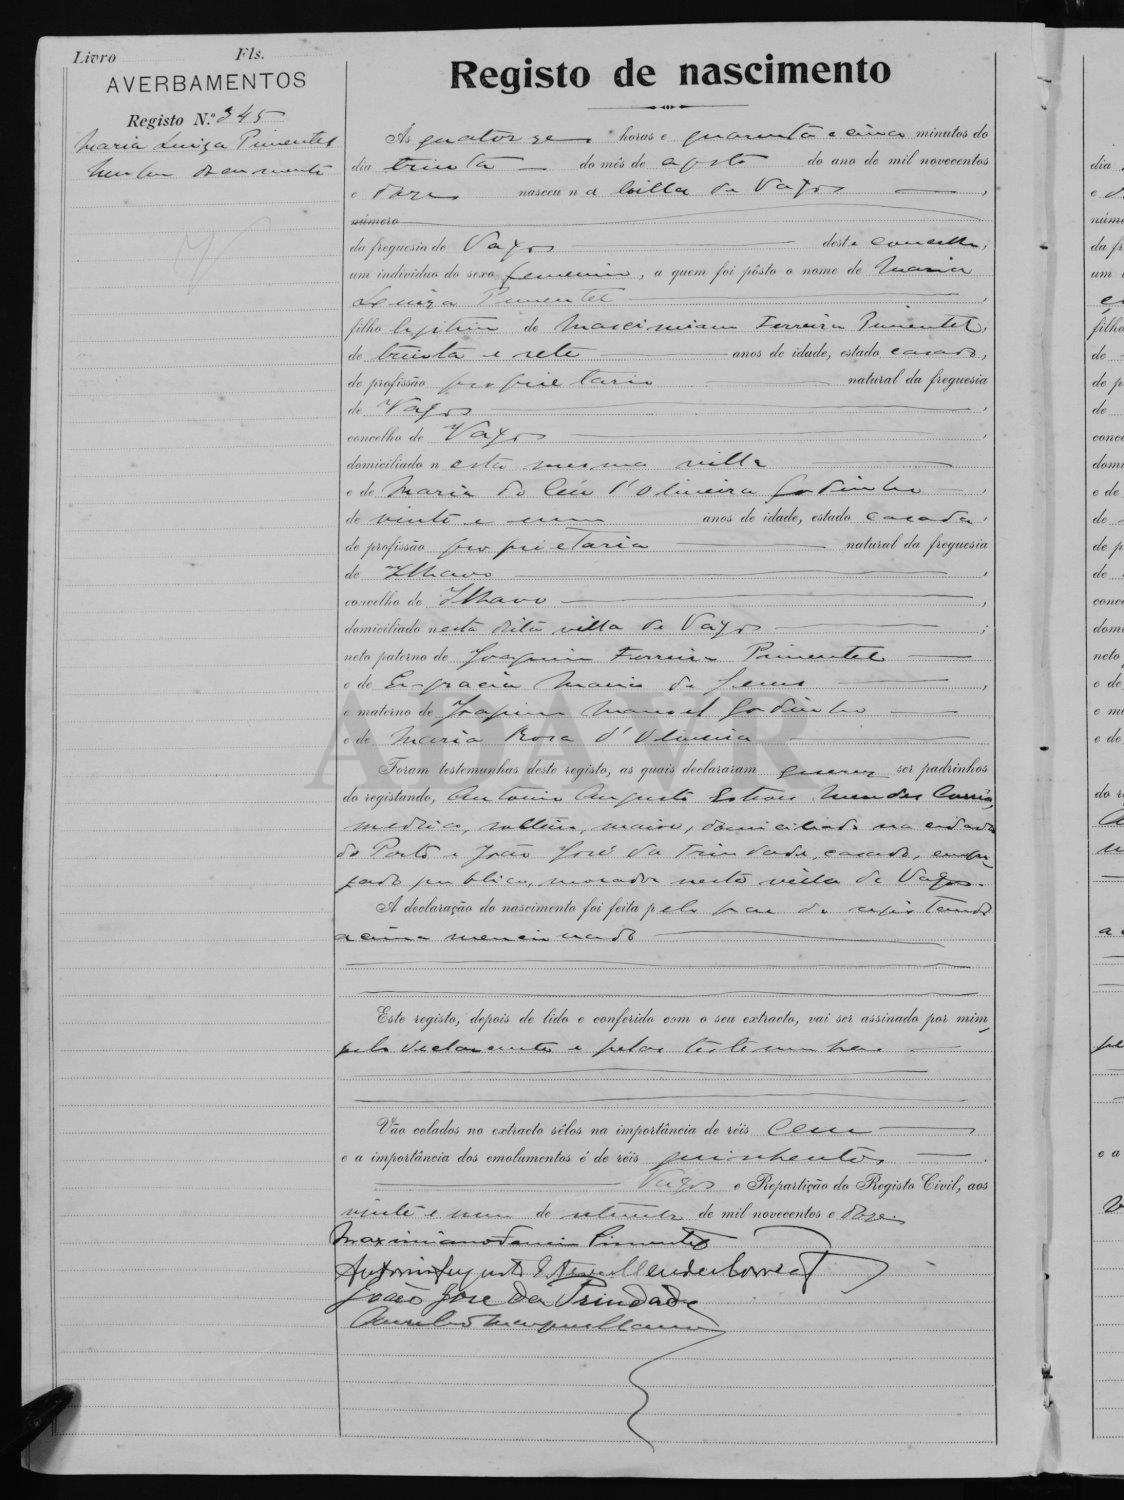 Livro Fls.
AVERBAMENTOS
Registo N.º 345
Maria Luiza Pimentel
Nenhum documento
Registo de nascimento
Às quatorze horas e quarenta e cinco minutos do
dia trinta do mês de agosto do ano de mil novecentos
e doze nasceu n a villa de Vagos,
número
da freguesia de Vagos deste concelho;
um indivíduo do sexo femenino, a quem foi pôsto o nome de Maria
Luiza Pimentel,
filho legitimo de Maximiano Ferreira Pimentel,
de trinta e sete anos de idade, estado casado,
de profissão proprietario natural da freguesia
de Vagos,
concelho de Vagos,
domiciliado n esta mesma villa
e de Maria do Céu d'Oliveira Godinho,
de vinte e um anos de idade, estado casada,
de profissão proprietaria natural da freguesia
de Ilhavo,
concelho de Ilhavo,
domiciliado nesta dita villa de Vagos;
neto paterno de Joaquim Ferreira Pimentel
e de Engracia Maria de Jesus,
e materno de Joaquim Manoel Godinho
e de Maria Rosa d'Oliveira
Foram testemunhas deste registo, as quais declararam querer ser padrinhos
do registando, Antonio Augusto Esteves Mendes Corrêa,
medico, solteiro, maior, domiciliado na cidade
do Porto e João José da Trindade, casado, empre-
gado publico, morador nesta villa de Vagos.
A declaração do nascimento foi feita pelo pae do registando
acima mencionado
Este registo, depois de lido e conferido com o seu extracto, vai ser assinado por mim,
pelo declarante e pelas testemunhas
Vão colados no extracto sêlos na importância de réis cem
e a importância dos emolumentos é de réis quinhentos.
Vagos e Repartição do Registo Civil, aos
vinte e um de setembro de mil novecentos e doze.
Pimentel
Antonio Augusto Esteves Mendes Corrêa
João José da Trindade
ADAVR